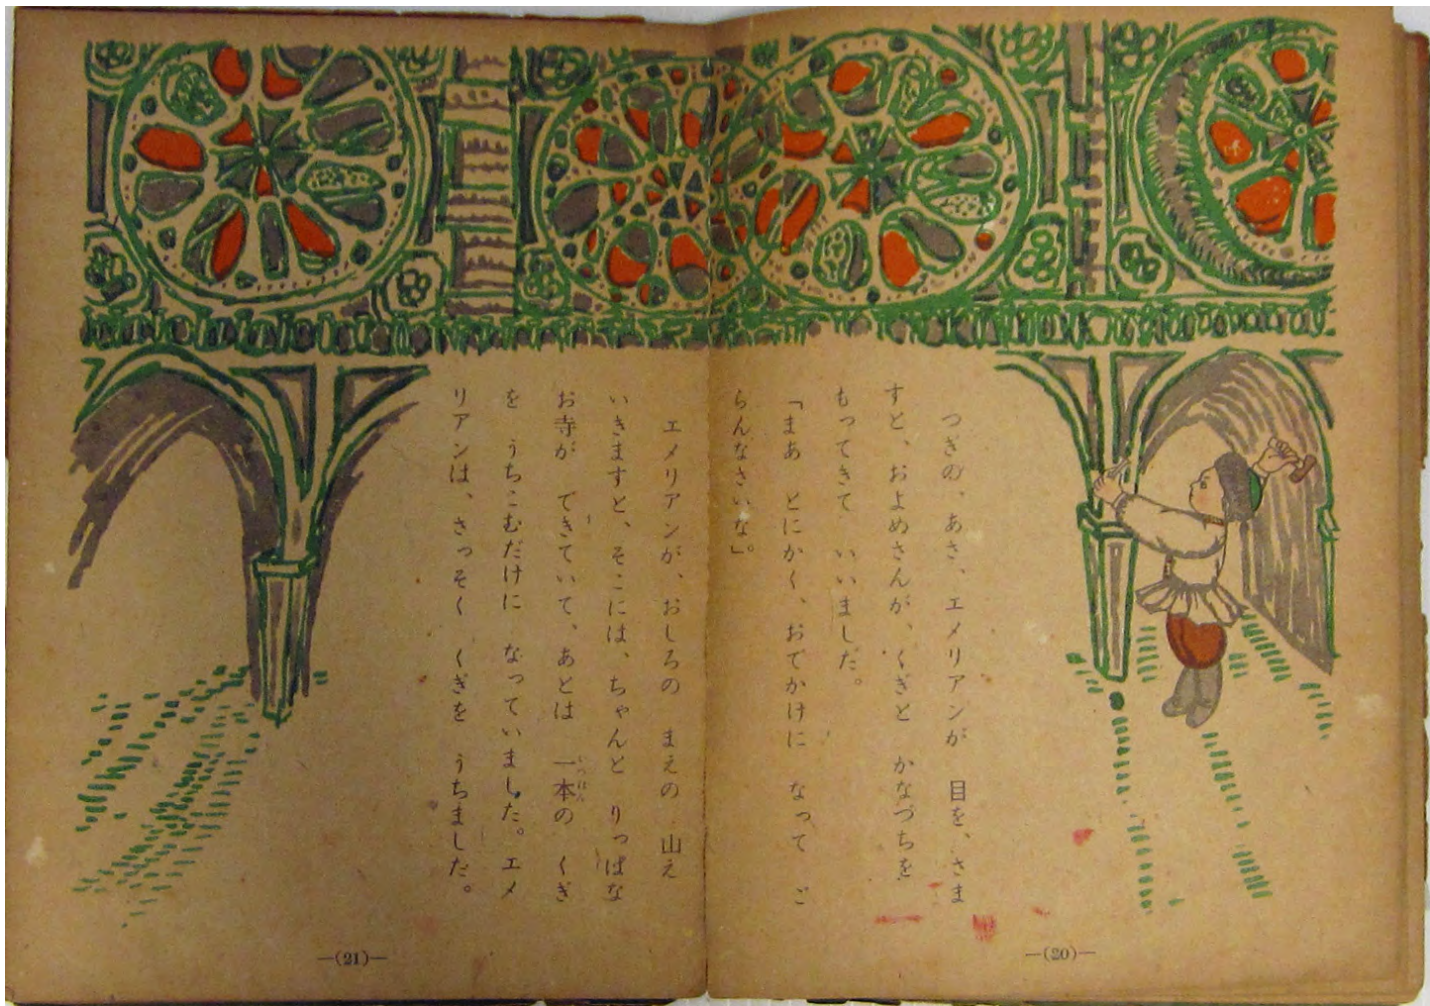 つぎの、あさ、エメリアンが 目を、さま
すと、およめさんが、くぎと かなづちを
もってきて いいました。
「まあ とにかく、おでかけに なって ご
らんなさいな」。
—(20)—
エメリアンが、おしろの まえの 山え
いきますと、そこには、ちゃんと りっぱな
お寺が できていて、あとは 一本の くぎ
を うちこむだけに なっていました。エメ
リアンは、さっそく くぎを うちました。
—(21)—